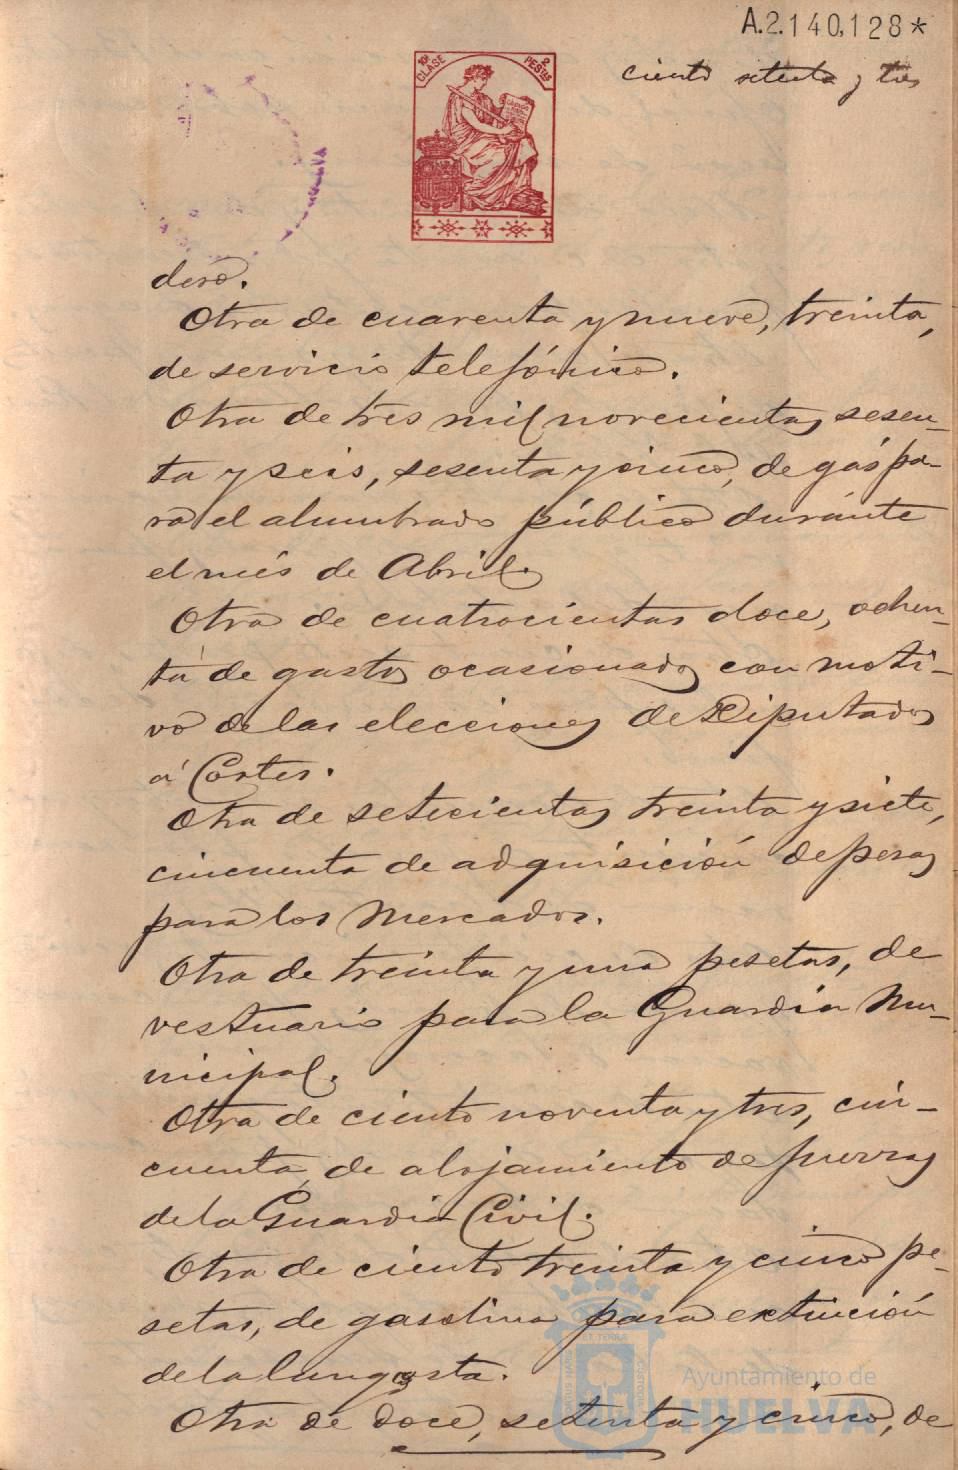 A.2.140,128*
ciento setenta y tres
10ª CLASE
2 PESETAS
dero.
Otra de cuarenta y nueve, treinta,
de servicio telefónico.
Otra de tres mil novecientas sesen-
ta y seis, sesenta y cinco, de gás pa-
ra el alumbrado público durante
el més de Abril.
Otra de cuatrocientas doce, ochen-
ta de gastos ocasionados con moti-
vo de las elecciones de Diputados
á Cortes.
Otra de setecientas treinta y siete,
cincuenta de adquisición de pesas
para los Mercados.
Otra de treinta y una pesetas, de
vestuario para la Guardia Mu-
nicipal.
Otra de ciento noventa y tres, cin-
cuenta, de alojamiento de fuerzas
de la Guardia Civil.
Otra de ciento treinta y cinco pe-
setas, de gasolina para extinción
de la langosta.
Otra de doce, setenta y cinco, de
Ayuntamiento de
HUELVA